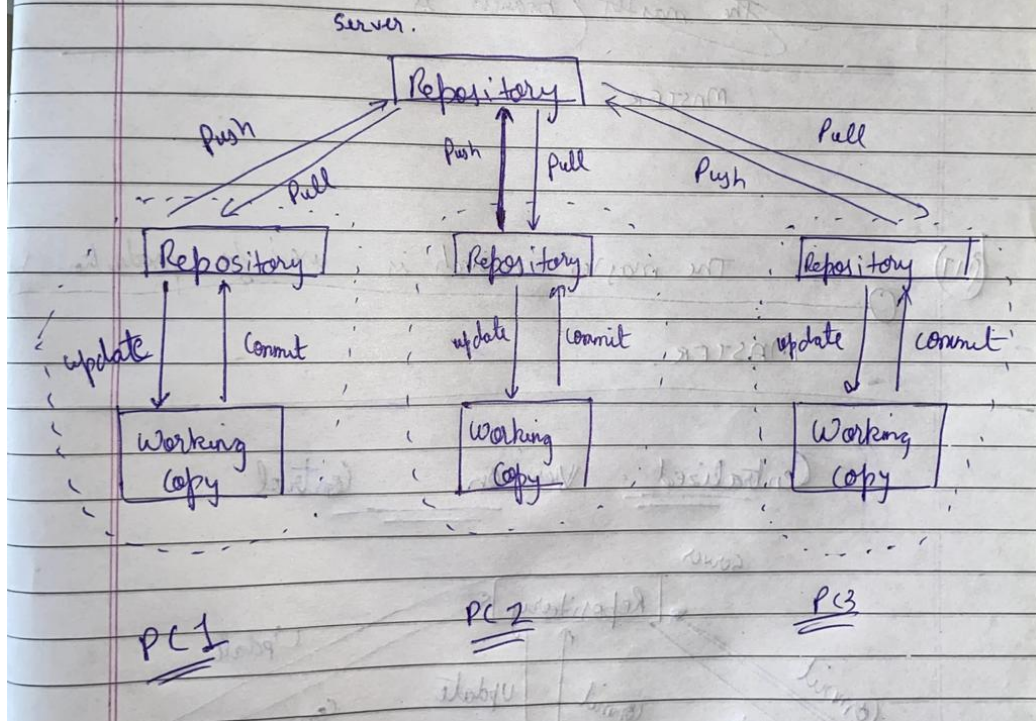 Server.
Repository
Push
Pull
Push
Pull
Push
Pull
Repository
Repository
Repository
update
Commit
update
Commit
update
commit
Working
Copy
Working
Copy
Working
Copy
PC1
PC2
PC3